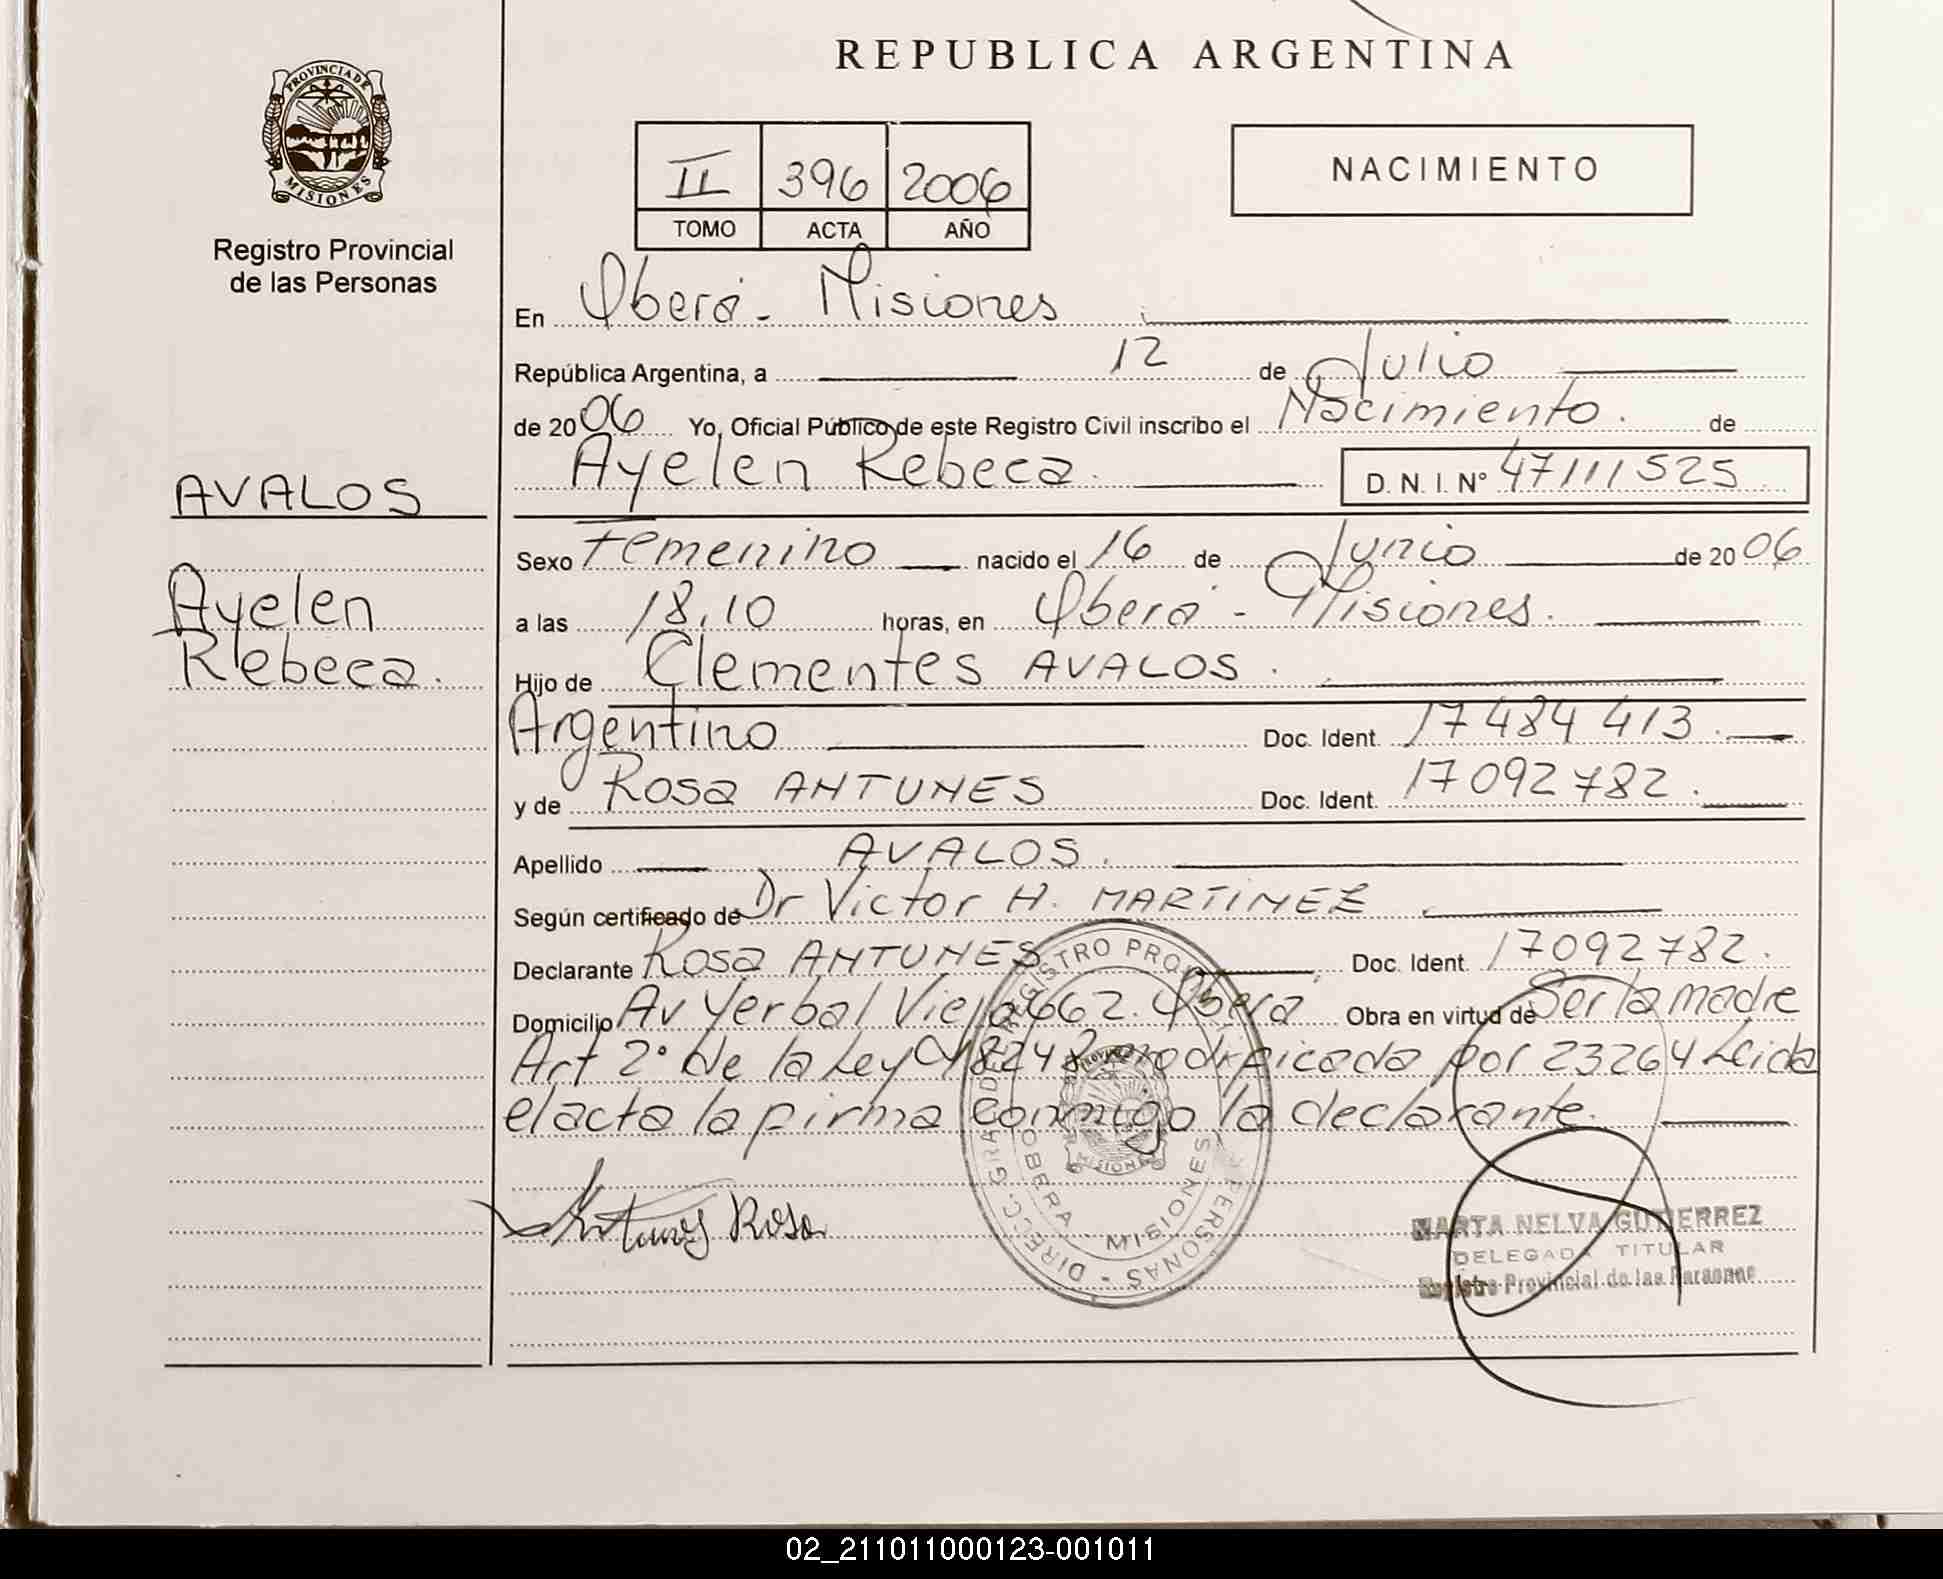 REPUBLICA ARGENTINA
PROVINCIA DE
MISIONES
Registro Provincial
de las Personas
II 396 2006
TOMO ACTA AÑO
NACIMIENTO
En Oberá - Misiones
República Argentina, a 12 de Julio
de 2006 Yo, Oficial Público de este Registro Civil inscribo el Nacimiento. de
Ayelen Rebeca. D. N. I. N° 47111525
AVALOS
Ayelen
Rebeca.
Sexo Femenino nacido el 16 de Junio de 2006
a las 18,10 horas, en Oberá - Misiones.
Hijo de Clementes AVALOS.
Argentino Doc. Ident. 17484413.
y de Rosa ANTUNES Doc. Ident. 17092782.
Apellido AVALOS.
Según certificado de Dr Victor H. MARTINEZ
Declarante Rosa ANTUNES Doc. Ident. 17092782.
Domicilio Av Yerbal Viejo 662. Oberá Obra en virtud de Ser la madre
Art 2° de la Ley 18248 modificada por 23264 Leida
el acta la firma conmigo la declarante.
Antunes Rosa
OBERA - MISIONES
MARTA NELVA GUTIERREZ
DELEGADA TITULAR
Registro Provincial de las Personas
02_211011000123-001011